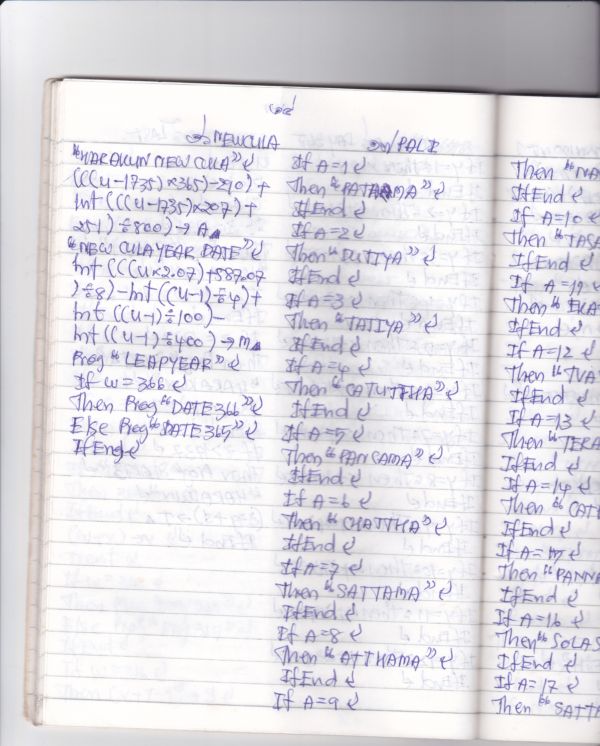 NEWCULA
"HARAKUN NEW CULA"↲
(((U-1735)×365)-210)+
Int(((U-1735)×207)+
251)÷800)→A◢
"NEW CULA YEAR DATE"↲
Int(((U×2.07)+587.07
)÷8)-Int((U-1)÷4)+
Int((U-1)÷100)-
Int((U-1)÷400)→M◢
Prog "LEAPYEAR"↲
If W=366↲
Then Prog"DATE366"↲
Else Prog"DATE365"↲
IfEnd↲
PALI
If A=1↲
Then "PATHAMA"↲
IfEnd↲
If A=2↲
Then "DUTIYA"↲
IfEnd↲
If A=3↲
Then "TATIYA"↲
IfEnd↲
If A=4↲
Then "CATUTTHA"↲
IfEnd↲
If A=5↲
Then "PANCAMA"↲
IfEnd↲
If A=6↲
Then "CHATTHA"↲
IfEnd↲
If A=7↲
Then "SATTAMA"↲
IfEnd↲
If A=8↲
Then "ATTHAMA"↲
IfEnd↲
If A=9↲
Then "NA
IfEnd↲
If A=10↲
Then "DASA
IfEnd↲
If A=11↲
Then "EKA
IfEnd↲
If A=12↲
Then "TVA
IfEnd↲
If A=13
Then "TERA
IfEnd↲
If A=14↲
Then "CAT
IfEnd↲
If A=15↲
Then "PANNA
IfEnd↲
If A=16↲
Then "SOLAS
IfEnd↲
If A=17↲
Then "SATT